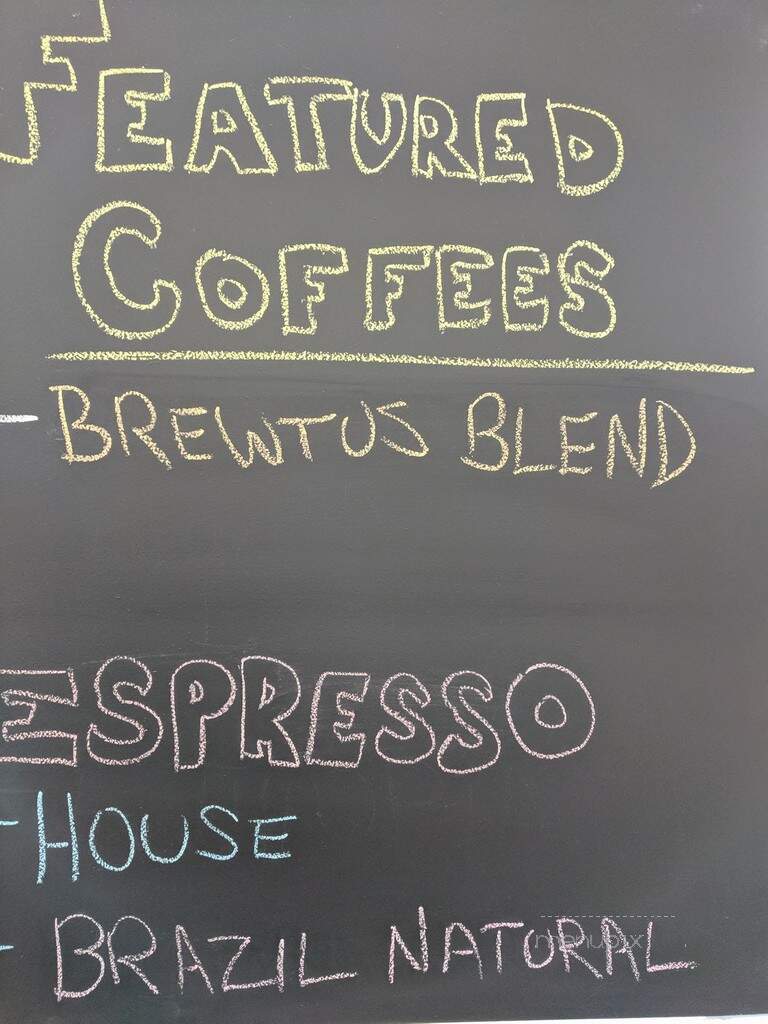 FEATURED
COFFEES
- BREWTUS BLEND
ESPRESSO
- HOUSE
- BRAZIL NATURAL
menupix